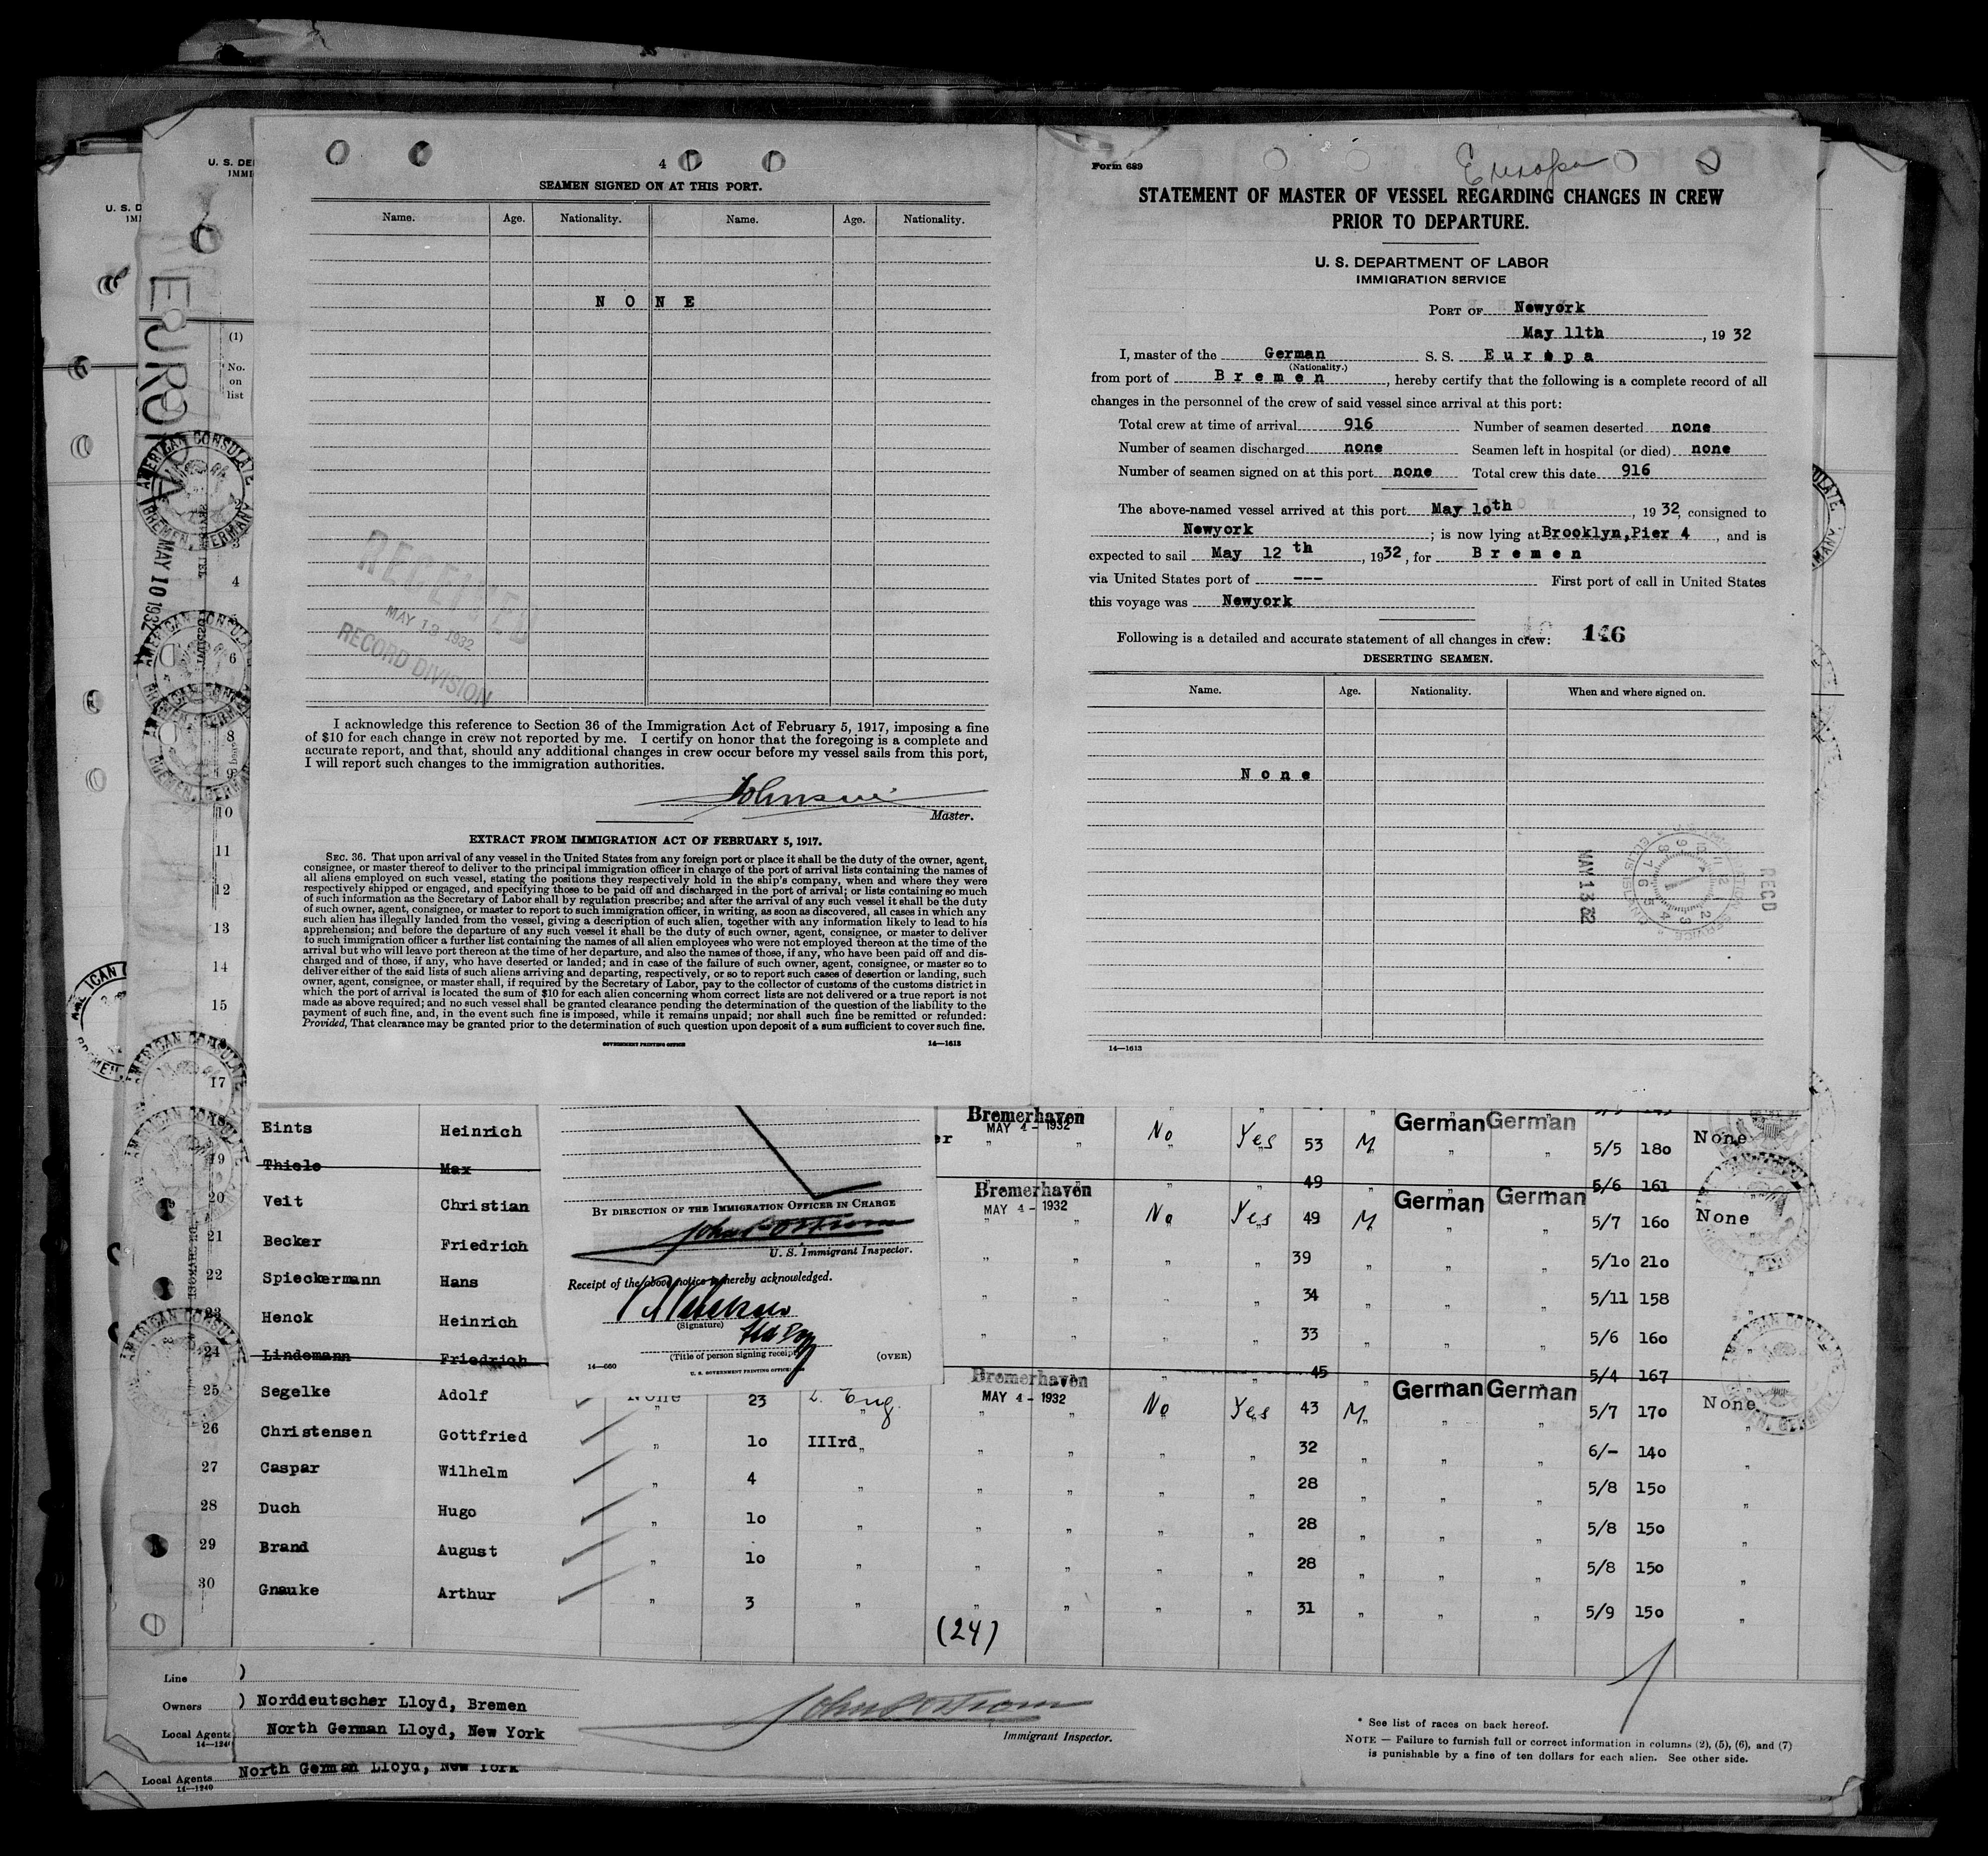 U. S. DE
IMMI
U. S. D
IMI
EUROP
(1)
No.
on
list
AMERICAN CONSULATE
BREMEN, GERMANY
MAY 10 1932
4
6
8
9
10
11
12
13
14
15
17
4
SEAMEN SIGNED ON AT THIS PORT.
Name. Age. Nationality. Name. Age. Nationality.
N O N E
RECEIVED
MAY 13 1932
RECORD DIVISION
I acknowledge this reference to Section 36 of the Immigration Act of February 5, 1917, imposing a fine
of $10 for each change in crew not reported by me. I certify on honor that the foregoing is a complete and
accurate report, and that, should any additional changes in crew occur before my vessel sails from this port,
I will report such changes to the immigration authorities.
Master.
EXTRACT FROM IMMIGRATION ACT OF FEBRUARY 5, 1917.
SEC. 36. That upon arrival of any vessel in the United States from any foreign port or place it shall be the duty of the owner, agent,
consignee, or master thereof to deliver to the principal immigration officer in charge of the port of arrival lists containing the names of
all aliens employed on such vessel, stating the positions they respectively hold in the ship's company, when and where they were
respectively shipped or engaged, and specifying those to be paid off and discharged in the port of arrival; or lists containing so much
of such information as the Secretary of Labor shall by regulation prescribe; and after the arrival of any such vessel it shall be the duty
of such owner, agent, consignee, or master to report to such immigration officer, in writing, as soon as discovered, all cases in which any
such alien has illegally landed from the vessel, giving a description of such alien, together with any information likely to lead to his
apprehension; and before the departure of any such vessel it shall be the duty of such owner, agent, consignee, or master to deliver
to such immigration officer a further list containing the names of all alien employees who were not employed thereon at the time of the
arrival but who will leave port thereon at the time of her departure, and also the names of those, if any, who have been paid off and dis-
charged and of those, if any, who have deserted or landed; and in case of the failure of such owner, agent, consignee, or master so to
deliver either of the said lists of such aliens arriving and departing, respectively, or so to report such cases of desertion or landing, such
owner, agent, consignee, or master shall, if required by the Secretary of Labor, pay to the collector of customs of the customs district in
which the port of arrival is located the sum of $10 for each alien concerning whom correct lists are not delivered or a true report is not
made as above required; and no such vessel shall be granted clearance pending the determination of the question of the liability to the
payment of such fine, and, in the event such fine is imposed, while it remains unpaid; nor shall such fine be remitted or refunded:
Provided, That clearance may be granted prior to the determination of such question upon deposit of a sum sufficient to cover such fine.
GOVERNMENT PRINTING OFFICE 14—1613
Form 689
Europa
STATEMENT OF MASTER OF VESSEL REGARDING CHANGES IN CREW
PRIOR TO DEPARTURE.
U. S. DEPARTMENT OF LABOR
IMMIGRATION SERVICE
PORT OF Newyork
May 11th, 1932
I, master of the German S. S. Europa
(Nationality.)
from port of Bremen, hereby certify that the following is a complete record of all
changes in the personnel of the crew of said vessel since arrival at this port:
Total crew at time of arrival 916 Number of seamen deserted none
Number of seamen discharged none Seamen left in hospital (or died) none
Number of seamen signed on at this port none Total crew this date 916
The above-named vessel arrived at this port May 10th, 1932, consigned to
Newyork; is now lying at Brooklyn, Pier 4, and is
expected to sail May 12th, 1932, for Bremen
via United States port of --- First port of call in United States
this voyage was Newyork
Following is a detailed and accurate statement of all changes in crew: 146
DESERTING SEAMEN.
Name. Age. Nationality. When and where signed on.
None
REC'D
MAY 13 32
14—1613
Eints Heinrich Bremerhaven MAY 4 - 1932 No Yes 53 M German German 5/5 180 None
19 Thiele Max 49 5/6 161
20 Veit Christian Bremerhaven MAY 4 - 1932 No Yes 49 M German German 5/7 160 None
21 Becker Friedrich " " " " 39 " " " 5/10 210 "
22 Spieckermann Hans " " " " 34 " " " 5/11 158 "
23 Henck Heinrich " " " " 33 " " " 5/6 160 "
24 Lindemann Friedrich 45 5/4 167
25 Segelke Adolf None 23 2. Eng. Bremerhaven MAY 4 - 1932 No Yes 43 M German German 5/7 170 None
26 Christensen Gottfried " 10 IIIrd " " " " " 32 " " " 6/- 140 "
27 Caspar Wilhelm " 4 " " " " " 28 " " " 5/8 150 "
28 Duch Hugo " 10 " " " " " 28 " " " 5/8 150 "
29 Brand August " 10 " " " " " 28 " " " 5/8 150 "
30 Gnauke Arthur " 3 " " " " " 31 " " " 5/9 150 "
(24)
BY DIRECTION OF THE IMMIGRATION OFFICER IN CHARGE
U. S. Immigrant Inspector.
Receipt of the above notice is hereby acknowledged.
(Signature)
(Title of person signing receipt)
14—660 (OVER)
U. S. GOVERNMENT PRINTING OFFICE
Line )
Owners ) Norddeutscher Lloyd, Bremen
Local Agents North German Lloyd, New York
14—1240
Immigrant Inspector.
* See list of races on back hereof.
NOTE — Failure to furnish full or correct information in columns (2), (5), (6), and (7)
is punishable by a fine of ten dollars for each alien. See other side.
Local Agents North German Lloyd, New York
14—1240